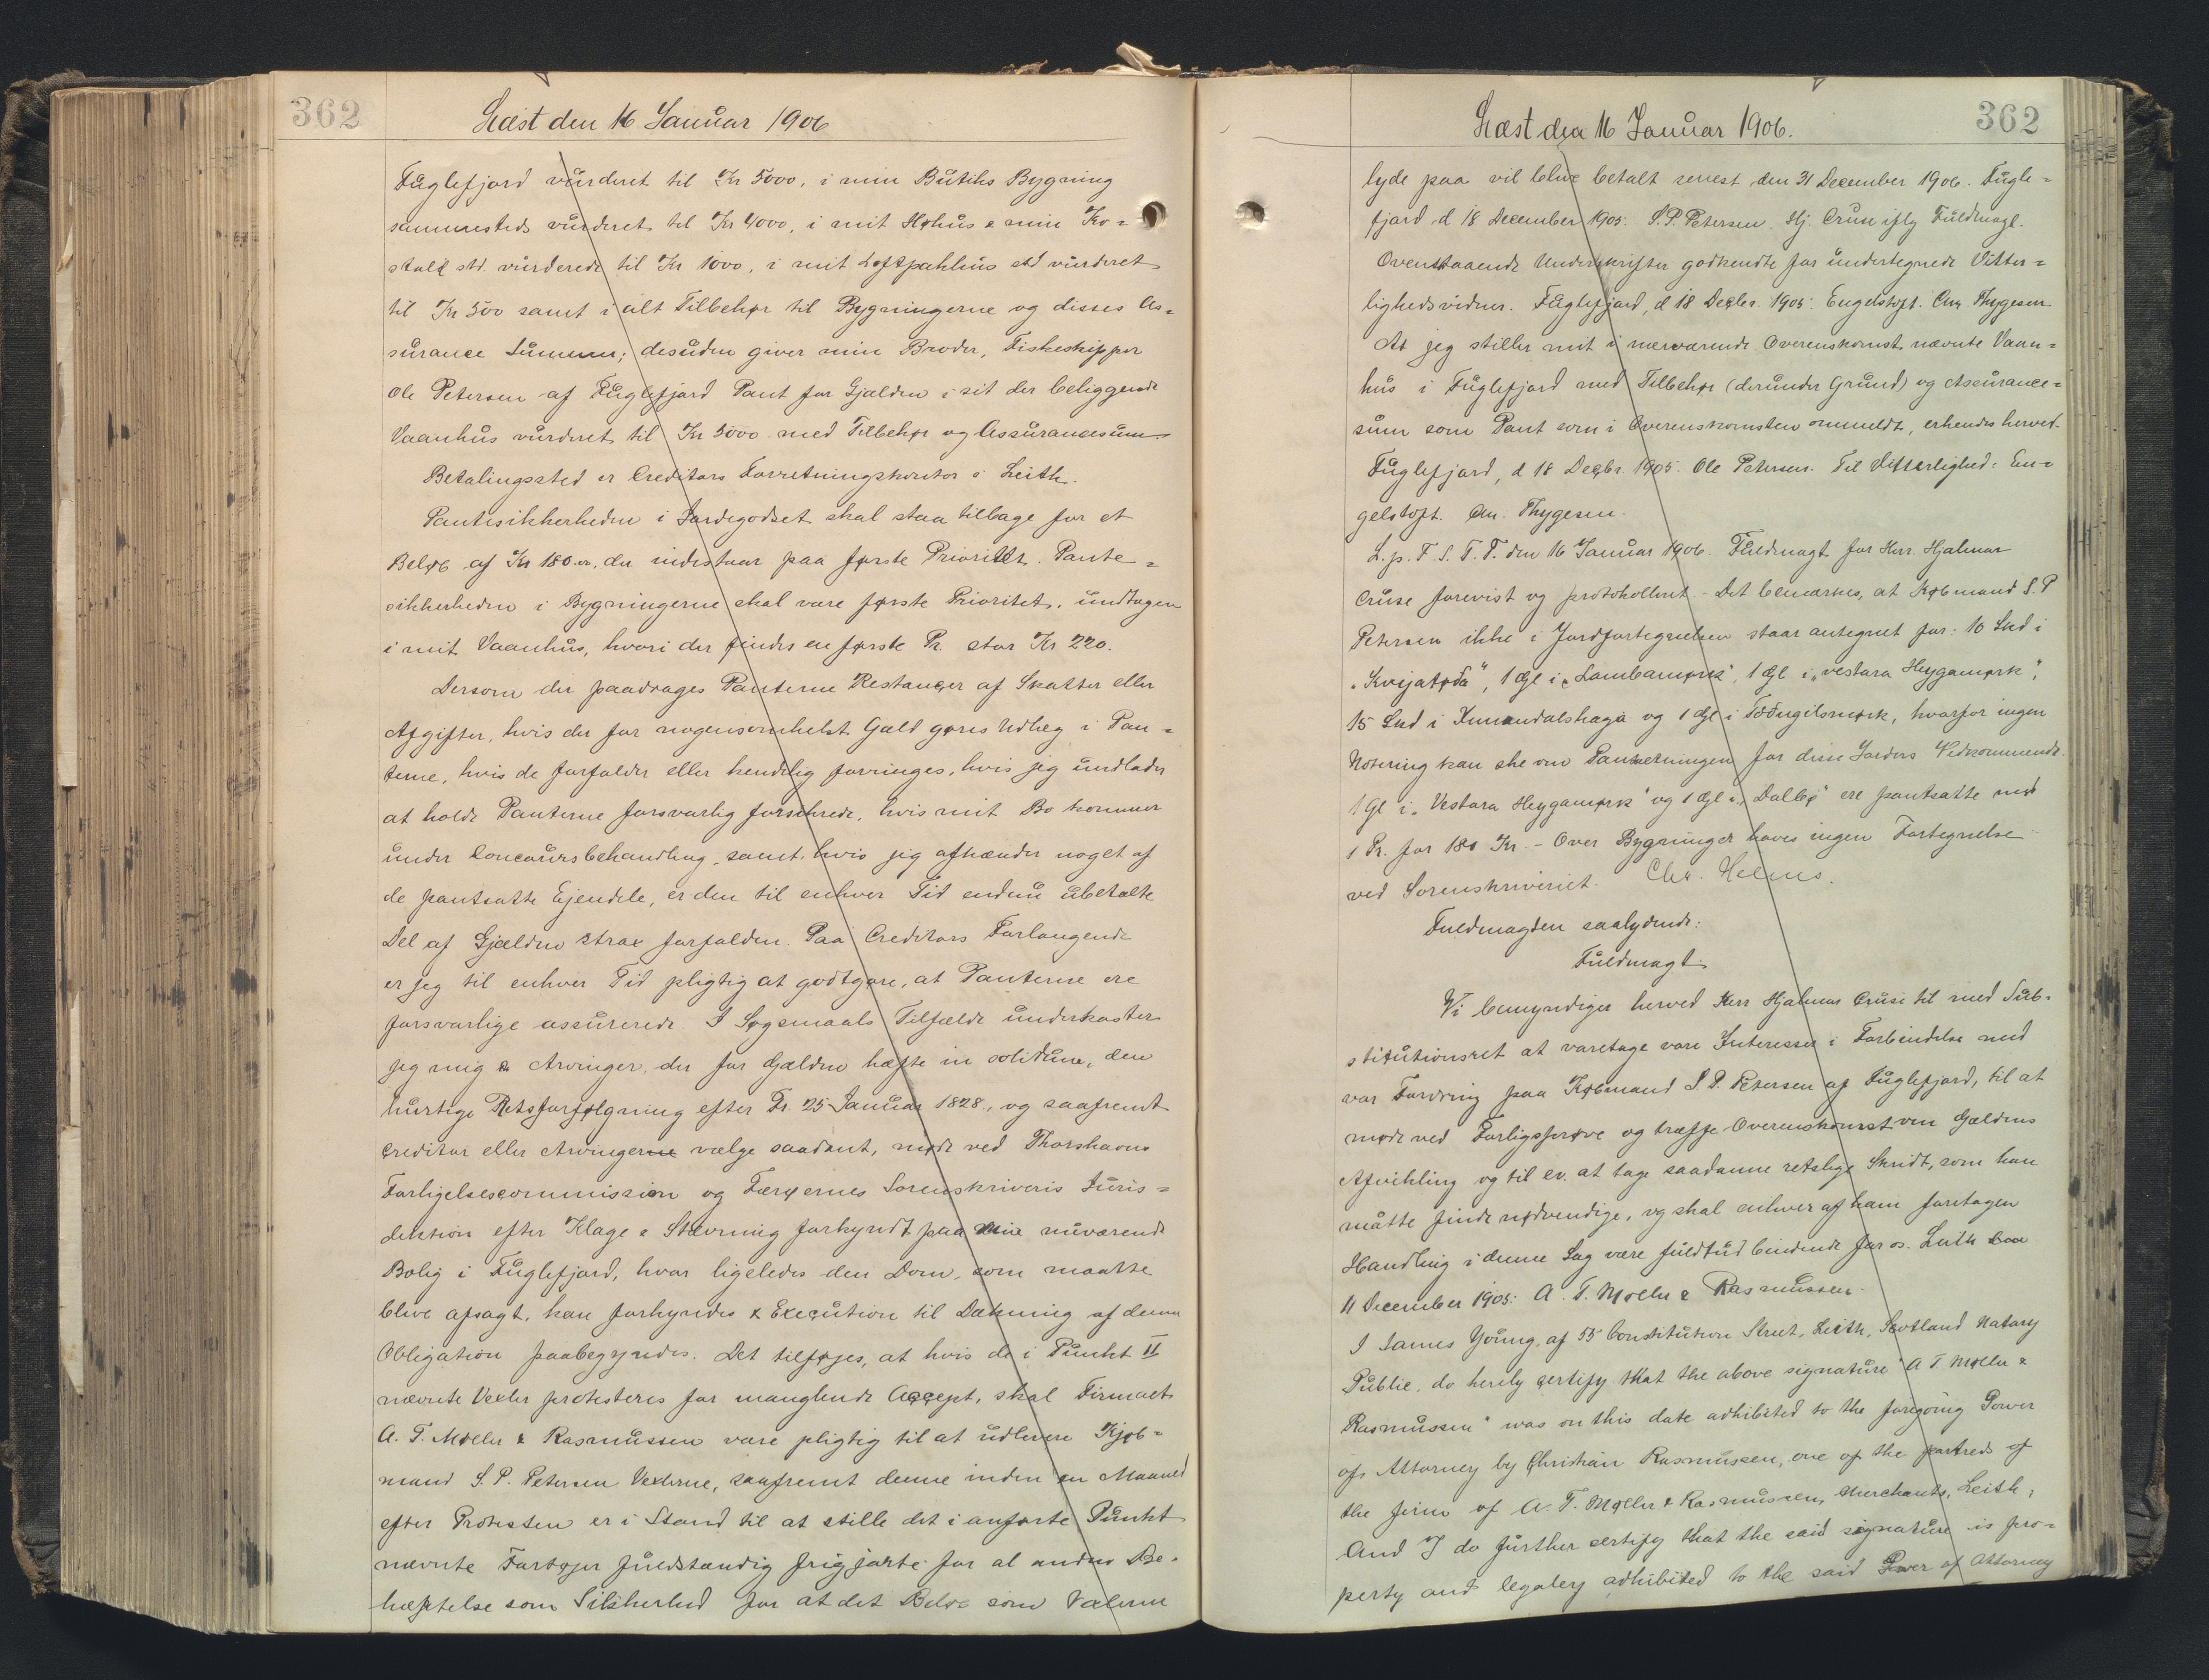 362
Læst den 16 Januar 1906
Fuglefjord vurderet til Kr 5000, i min Butiks Bygning
sammesteds vurderet til Kr 4000, i mit Høhus & min Ko=
stald std. vurderede til Kr 1000, i mit Loftpakhus std vurderet
til Kr 500 samt i alt Tilbehør til Bygningerne og disses As=
surance Summer; desuden giver min Broder, Fiskeskipper
Ole Petersen af Fuglefjord Pant for Gjælden i sit der beliggende
Vaanhus vurderet til Kr 3000 med Tilbehør og Assurancesum
Betalingssted er Creditors Forretningskontor i Leith.
Pantesikkerheden i Jordegodset skal staa tilbage for et
Beløb af Kr 180.00. der indestaar paa første Prioritet. Pante=
sikkerheden i Bygningerne skal være første Prioritet, undtagen
i mit Vaanhus, hvori der findes en første Pr. stor Kr 220.
Dersom der paadrages Panterne Restancer af Skatter eller
Afgifter, hvis der for nogensomhelst Gæld gøres Udlæg i Pan=
terne, hvis de forfalder eller kendelig forringes, hvis jeg undlader
at holde Panterne forsvarlig forsikrede, hvis mit Bo kommer
under Concoursbehandling, samt hvis jeg afhænder noget af
de pantsatte Ejendele, er den til enhver Tid endnu ubetalte
Del af Gjælden strax forfalden. Paa Creditors Forlangende
er jeg til enhver Tid pligtig at godtgøre, at Panterne ere
forsvarlige assurerede. I Søgsmaals Tilfælde underkaster
jeg mig & Arvinger, der for Gælden hæfte in solidum, den
hurtige Retsforfølgning efter Fr. 25 Januar 1828, og saafremt
Creditor eller Arvingerne vælge saadant, møde ved Thorshavns
Forligelsescommission og Færøernes Sorenskriveris Juris=
diktion efter Klage & Stævning forkyndt paa min nuværende
Bolig i Fuglefjord, hvor ligeledes den Dom, som maatte
blive afsagt, kan forkyndes & Execution til Dækning af denne
Obligation paabegyndes. Det tilføjes, at hvis de i Punkt II
nævnte Vexler protesteres for manglende Accept, skal Firmaet
A. T. Møller & Rasmussen være pligtig til at udlevere Kjøb=
mand S. P. Petersen Vexlerne, saafremt denne inden en Maaned
efter Protesten er i Stand til at stille det i anførte Punkt
nævnte Fartøjer fuldstændig frigjorte for al anden Be=
hæftelse som Sikkerhed for at det Beløb som Vexlerne
Læst den 16 Januar 1906.
362
lyde paa vil blive betalt senest den 31 December 1906. Fugle=
fjord d 18 December 1905. S. P. Petersen. Hj. Cruse iflg Fuldmagt.
Ovenstaaende Underskrifter godkendte for undertegnede Vitter=
lighedsvidner. Fuglefjord, d 18 Decbr. 1905. Engelstoft. Chr. Thygesen
At jeg stiller mit i nærværende Overenskomst nævnte Vaan=
hus i Fuglefjord med Tilbehør (derunder Grund) og Assurance=
sum som Pant som i Overenskomsten ommeldt, erkendes herved.
Fuglefjord, d 18 Decbr. 1905. Ole Petersen. Til Vitterlighed: En=
gelstoft. Chr. Thygesen.
L. p. F. S. T. T. den 16 Januar 1906. Fuldmagt for Herr. Hjalmar
Cruse forevist og protokolleret. - Det bemærkes, at Købmand S. P
Petersen ikke i Jordfortegnelsen staar antegnet for: 10 Snd i
"Kvijatøða", 1 Gl i "Lambamørk", 1 Gl i "vestara Heygamørk",
15 Snd i Innandalshaga og 1 Gl i Toðngilsmørk, hvorfor ingen
Notering kan ske om Pantsetningen for disse Jorders Vedkommende.
1 Gl i "Vestara Heygamørk" og 1 Gl i "Dalbø" ere pantsatte med
1 Pr. for 180 Kr. - Over Bygninger haves ingen Fortegnelse
ved Sorenskriveriet. Chr. Helms.
Fuldmagten saalydende:
Fuldmagt.
Vi bemyndiger herved Herr Hjalmar Cruse til med Sub=
stitutionsret at varetage vore Interesser i Forbindelse med
vor Fordring paa Købmand S. P. Petersen af Fuglefjord, til at
møde ved Forligsprøve og træffe Overenskomst om Gældens
Afvikling og til ev. at tage saadanne retslige Skridt, som han
måtte finde nødvendige, og skal enhver af ham foretagen
Handling i denne Sag være fuldtud bindende for os. Leith den
11 December 1905. A. T. Møller & Rasmussen.
I James Young, of 55 Constitution Street, Leith, Scotland Notary
Public, do hereby certify that the above signature "A T. Møller &
Rasmussen" was on this date adhibited to the foregoing Power
of Attorney by Christian Rasmussen, one of the partners of
the firm of A. T. Møller & Rasmussen, Merchants, Leith;
And I do further certify that the said signature is pro=
perly and legaley adhibited to the said Power of Attorney